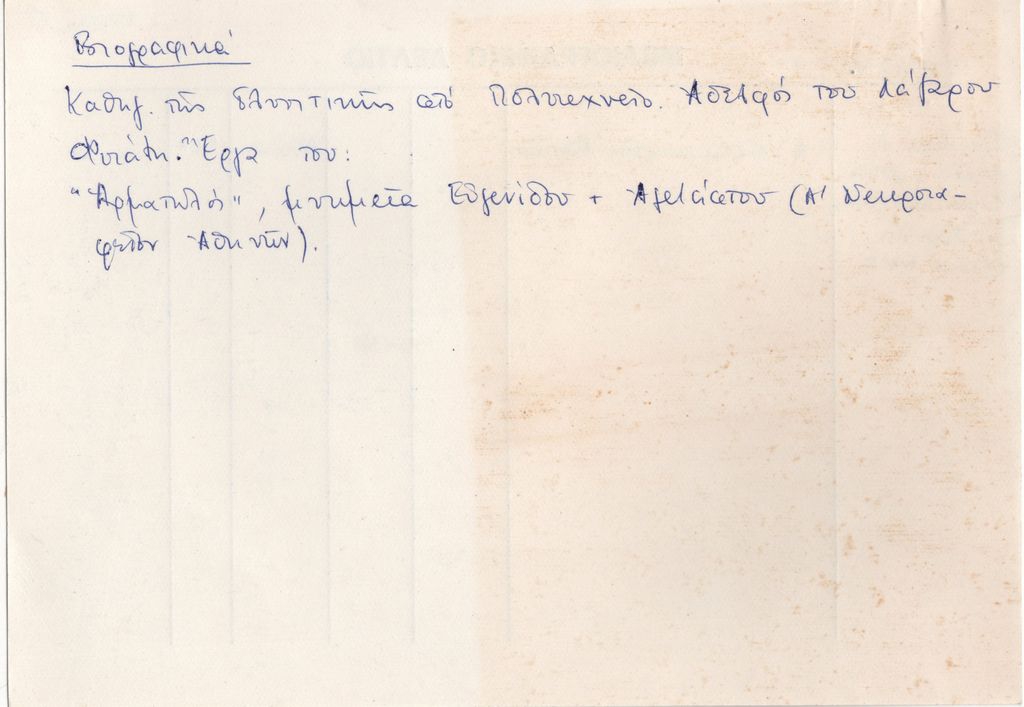 Βιογραφικά
Καθηγ. της γλυπτικής στό Πολυτεχνείο. Αδελφός του Λάζαρου
Φυτάλη. Έργα του:
"Αρματωλός", μνημεία Ευγενίδου + (Α' Νεκροτα-
φείον Αθηνών).